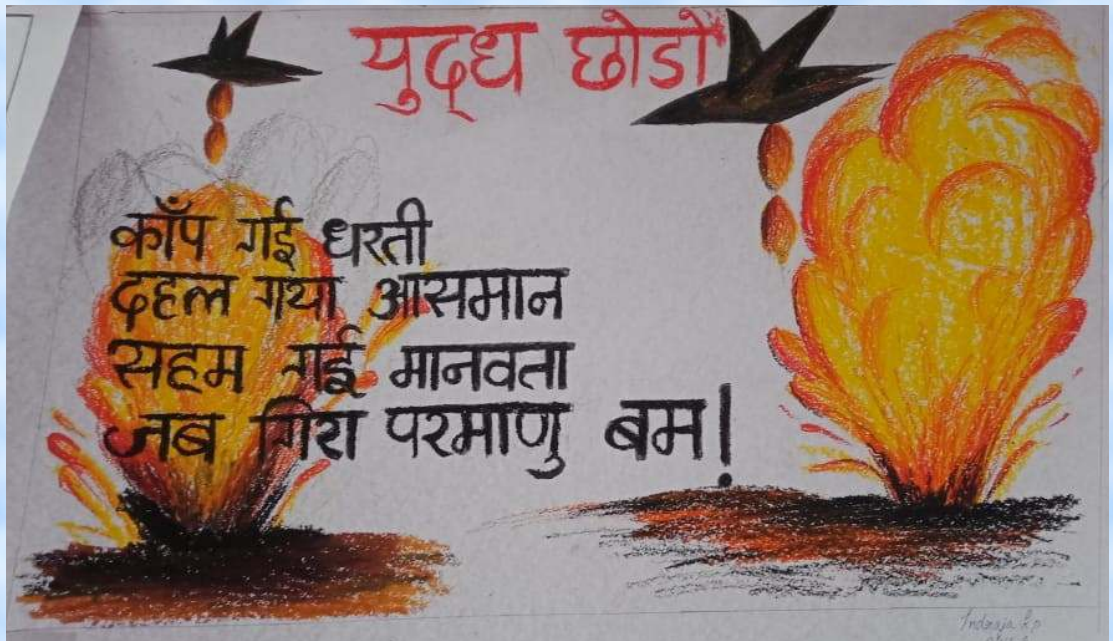 युद्ध छोडो
काँप गई धरती
दहल गया आसमान
सहम गई मानवता
जब गिरा परमाणु बम!
Indraja R.p